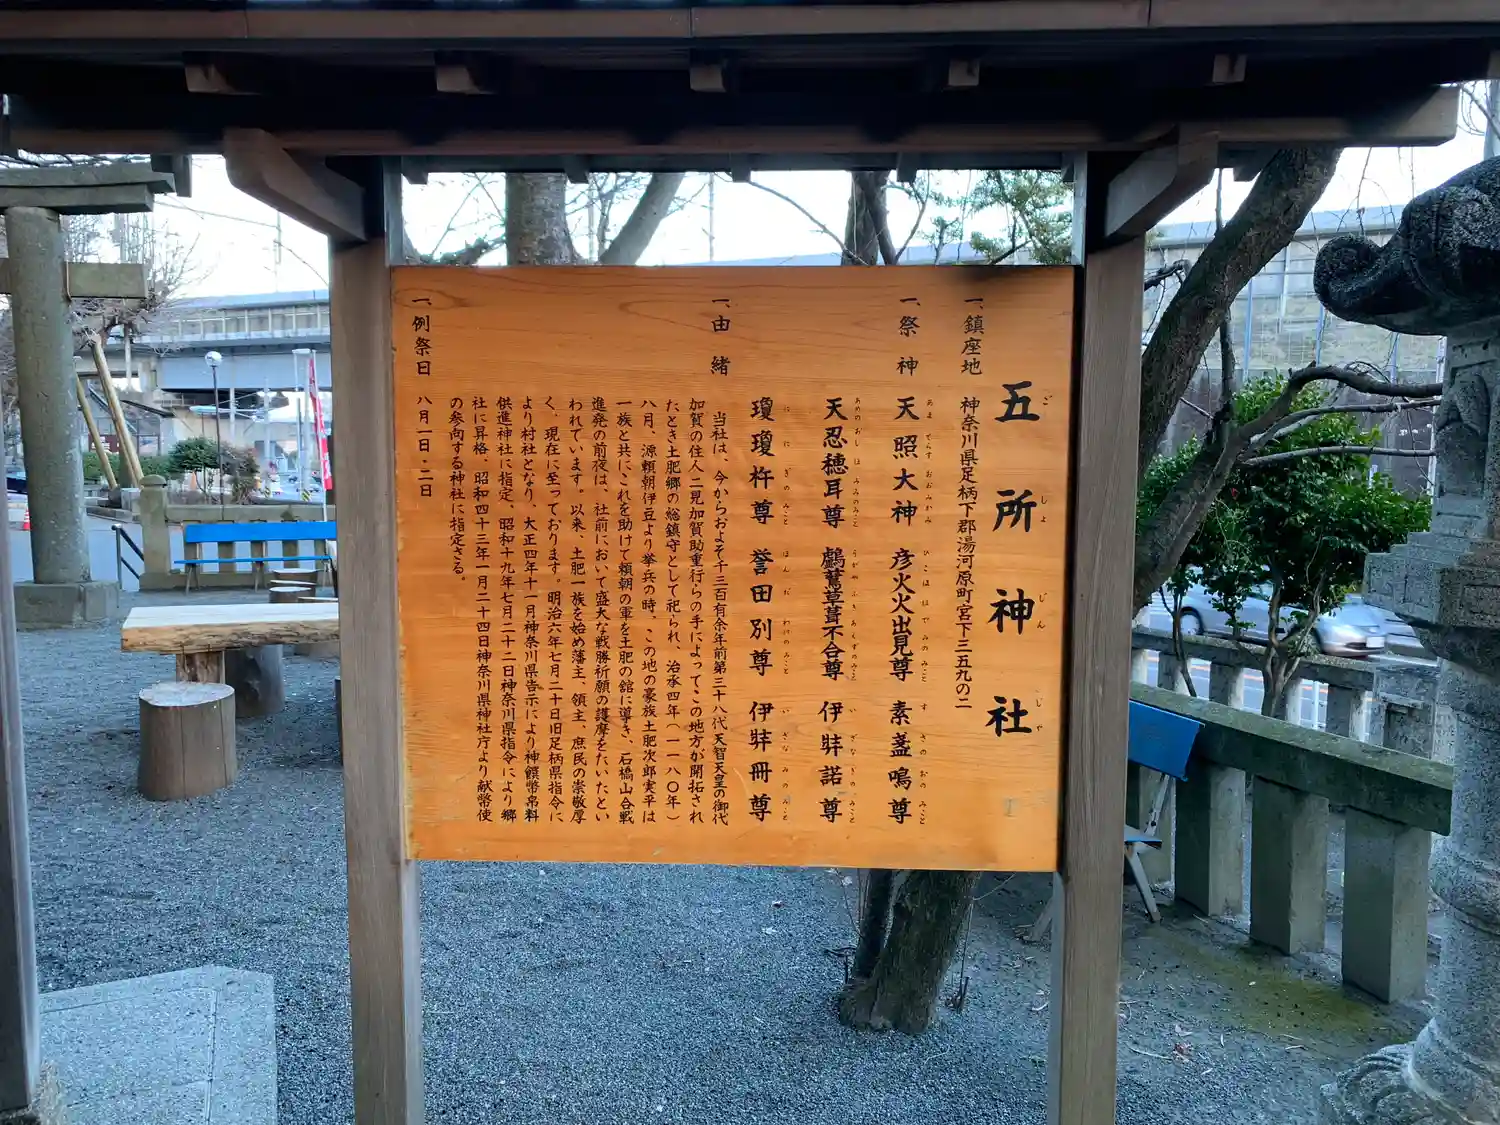 五所神社
ごしょじんじゃ
一、鎮座地 神奈川県足柄下郡湯河原町宮下三五九の二
一、祭神 天照大神 彦火火出見尊 素盞嗚尊
天忍穂耳尊 鸕鶿草葺不合尊 伊弉諾尊
瓊瓊杵尊 誉田別尊 伊弉冊尊
一、由緒
当社は、今からおよそ千三百有余年前第三十八代天智天皇の御代
加賀の住人二見加賀助重行らの手によってこの地方が開拓され
たとき土肥郷の総鎮守として祀られ、治承四年(一一八〇年)
八月、源頼朝伊豆より挙兵の時、この地の豪族土肥次郎実平は
一族と共にこれを助けて頼朝の軍を土肥の館に導き、石橋山合戦
進発の前夜は、社前において盛大な戦勝祈願の護摩をたいたとい
われています。以来、土肥一族を始め藩主、領主、庶民の崇敬厚
く、現在に至っております。明治六年七月二十日旧足柄県指令に
より村社となり、大正四年十一月神奈川県告示により神饌幣帛料
供進神社に指定、昭和十九年七月二十二日神奈川県指令により郷
社に昇格、昭和四十三年一月二十四日神奈川県神社庁より献幣使
の参向する神社に指定さる。
一、例祭日 八月一日・二日